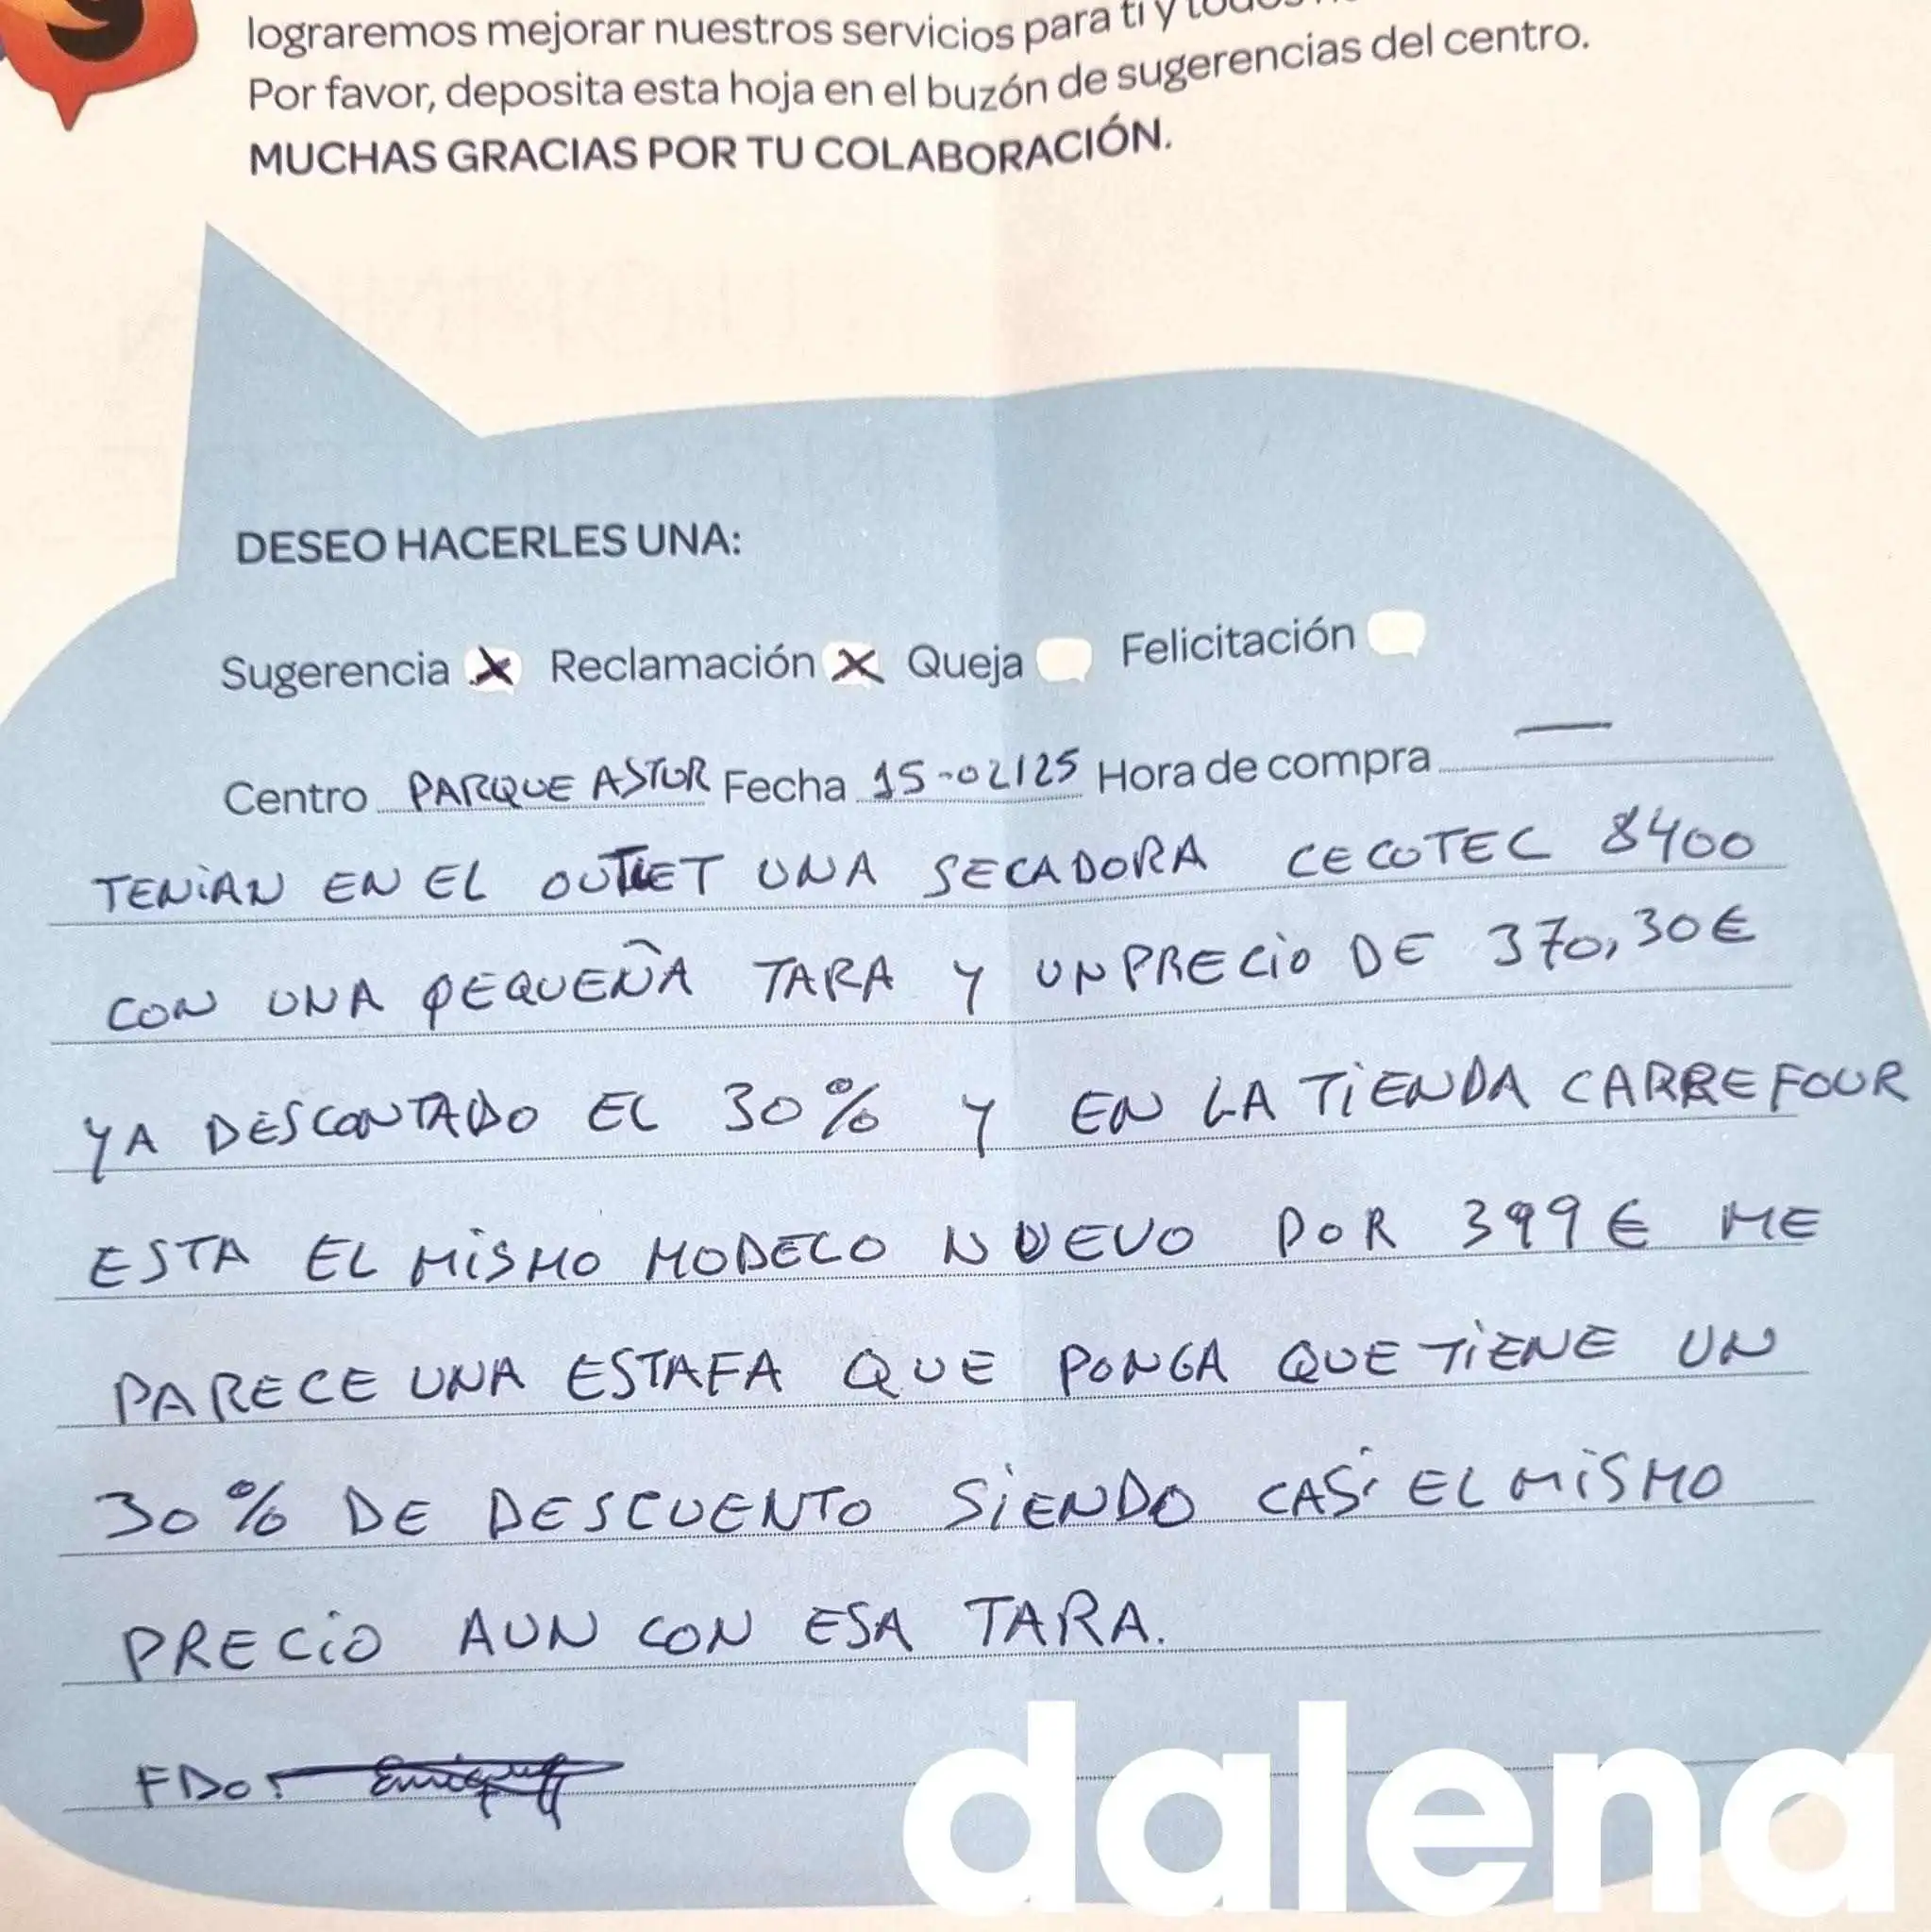 lograremos mejorar nuestros servicios para ti y
Por favor, deposita esta hoja en el buzón de sugerencias del centro.
MUCHAS GRACIAS POR TU COLABORACIÓN.
DESEO HACERLES UNA:
Sugerencia X Reclamación X Queja Felicitación
Centro PARQUE ASTUR Fecha 15-02/25 Hora de compra —
TENIAN EN EL OUTLET UNA SECADORA CECOTEC 8400
CON UNA PEQUEÑA TARA Y UN PRECIO DE 370,30€
YA DESCONTADO EL 30% Y EN LA TIENDA CARREFOUR
ESTA EL MISMO MODELO NUEVO POR 399€ ME
PARECE UNA ESTAFA QUE PONGA QUE TIENE UN
30% DE DESCUENTO SIENDO CASI EL MISMO
PRECIO AUN CON ESA TARA.
FDO:
dalena